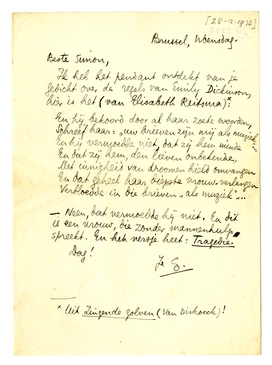 [28-2-1972]
Brussel, Woensdag.
Beste Simon,
Ik heb het pendant ontdekt van je
gedicht over de regels van Emily Dickinson,
hier is het (van Elisabeth Reitsma)*:
En hij bekoord door al haar zoete woorden,
Schreef haar: „uw brieven zijn mij als muziek"
En hij vermoedde niet, dat zij hem minde
En dat zij hem, den lieven onbekende,
Met innigheid van droomen hield omvangen
En dat geheel haar diepste vrouw-verlangen
Verbloedde in die brieven „als muziek"...
— Neen, dat vermoedde hij niet. En dit
is een vrouw, die zonder mannenhulp
spreekt. En het versje heet: Tragedie.
Dag!
Je
* Uit Zingende golven (Van Dishoeck)!